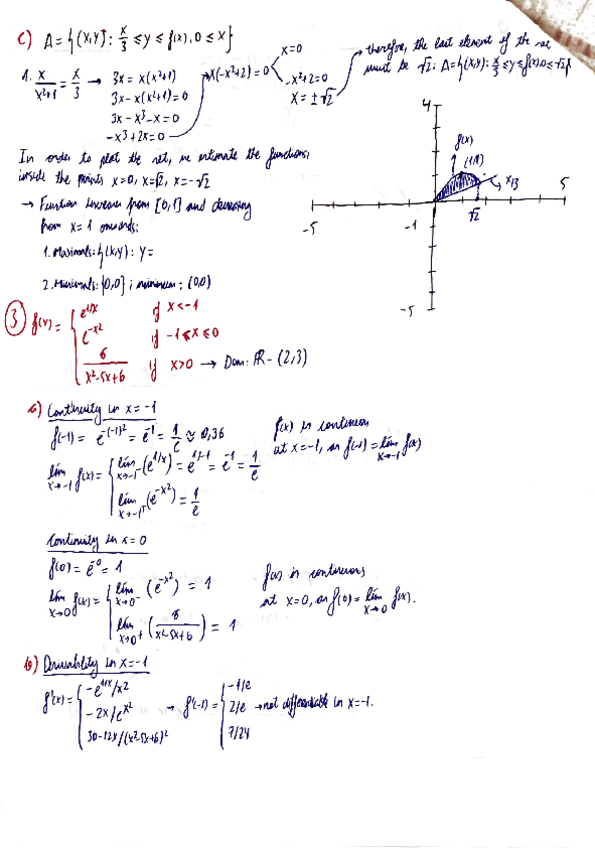 c) A = {(x,y): x/3 ≤ y ≤ f(x), 0 ≤ x}
1. x/(x²+1) = x/3 → 3x = x(x²+1)
3x - x(x²+1) = 0
3x - x³ - x = 0
-x³ + 2x = 0
x(-x²+2) = 0
x = 0
-x²+2 = 0
x = ±√2
therefore, the last element of the
must be √2: A = {(x,y): x/3 ≤ y ≤ f(x), 0 ≤ x ≤ √2}
In order to plot the set, we estimate the functions,
inside the points x=0, x=√2, x=-√2
→ Function increases from [0,1] and decreasing
from x=1 onwards:
1. Maximals: {(x,y): y =
2. Minimals: {0,0} ; minimum: (0,0)
4
f(x)
x/3
5
-5
-1
√2
-5
③ f(x) = { e^(1/x) if x < -1
e^(-x²) if -1 ≤ x ≤ 0
6/(x²-5x+6) if x > 0 → Dom: ℝ - (2,3)
a) Continuity in x = -1
f(-1) = e^(-(-1)²) = e^(-1) = 1/e ≈ 0,36
lím x→-1 f(x) = { lím x→-1⁻ (e^(1/x)) = e^(1/-1) = e^(-1) = 1/e
lím x→-1⁺ (e^(-x²)) = 1/e
f(x) is continuous
at x=-1, as f(-1) = lím x→-1 f(x)
Continuity in x = 0
f(0) = e^(-0) = 1
lím x→0 f(x) = { lím x→0⁻ (e^(-x²)) = 1
lím x→0⁺ (6/(x²-5x+6)) = 1
f(x) is continuous
at x=0, as f(0) = lím x→0 f(x).
b) Derivability in x = -1
f'(x) = { -e^(1/x)/x²
-2x/e^(x²)
30-12x/(x²-5x+6)²
→ f'(-1) = { -1/e
2/e → not differentiable in x=-1.
7/24